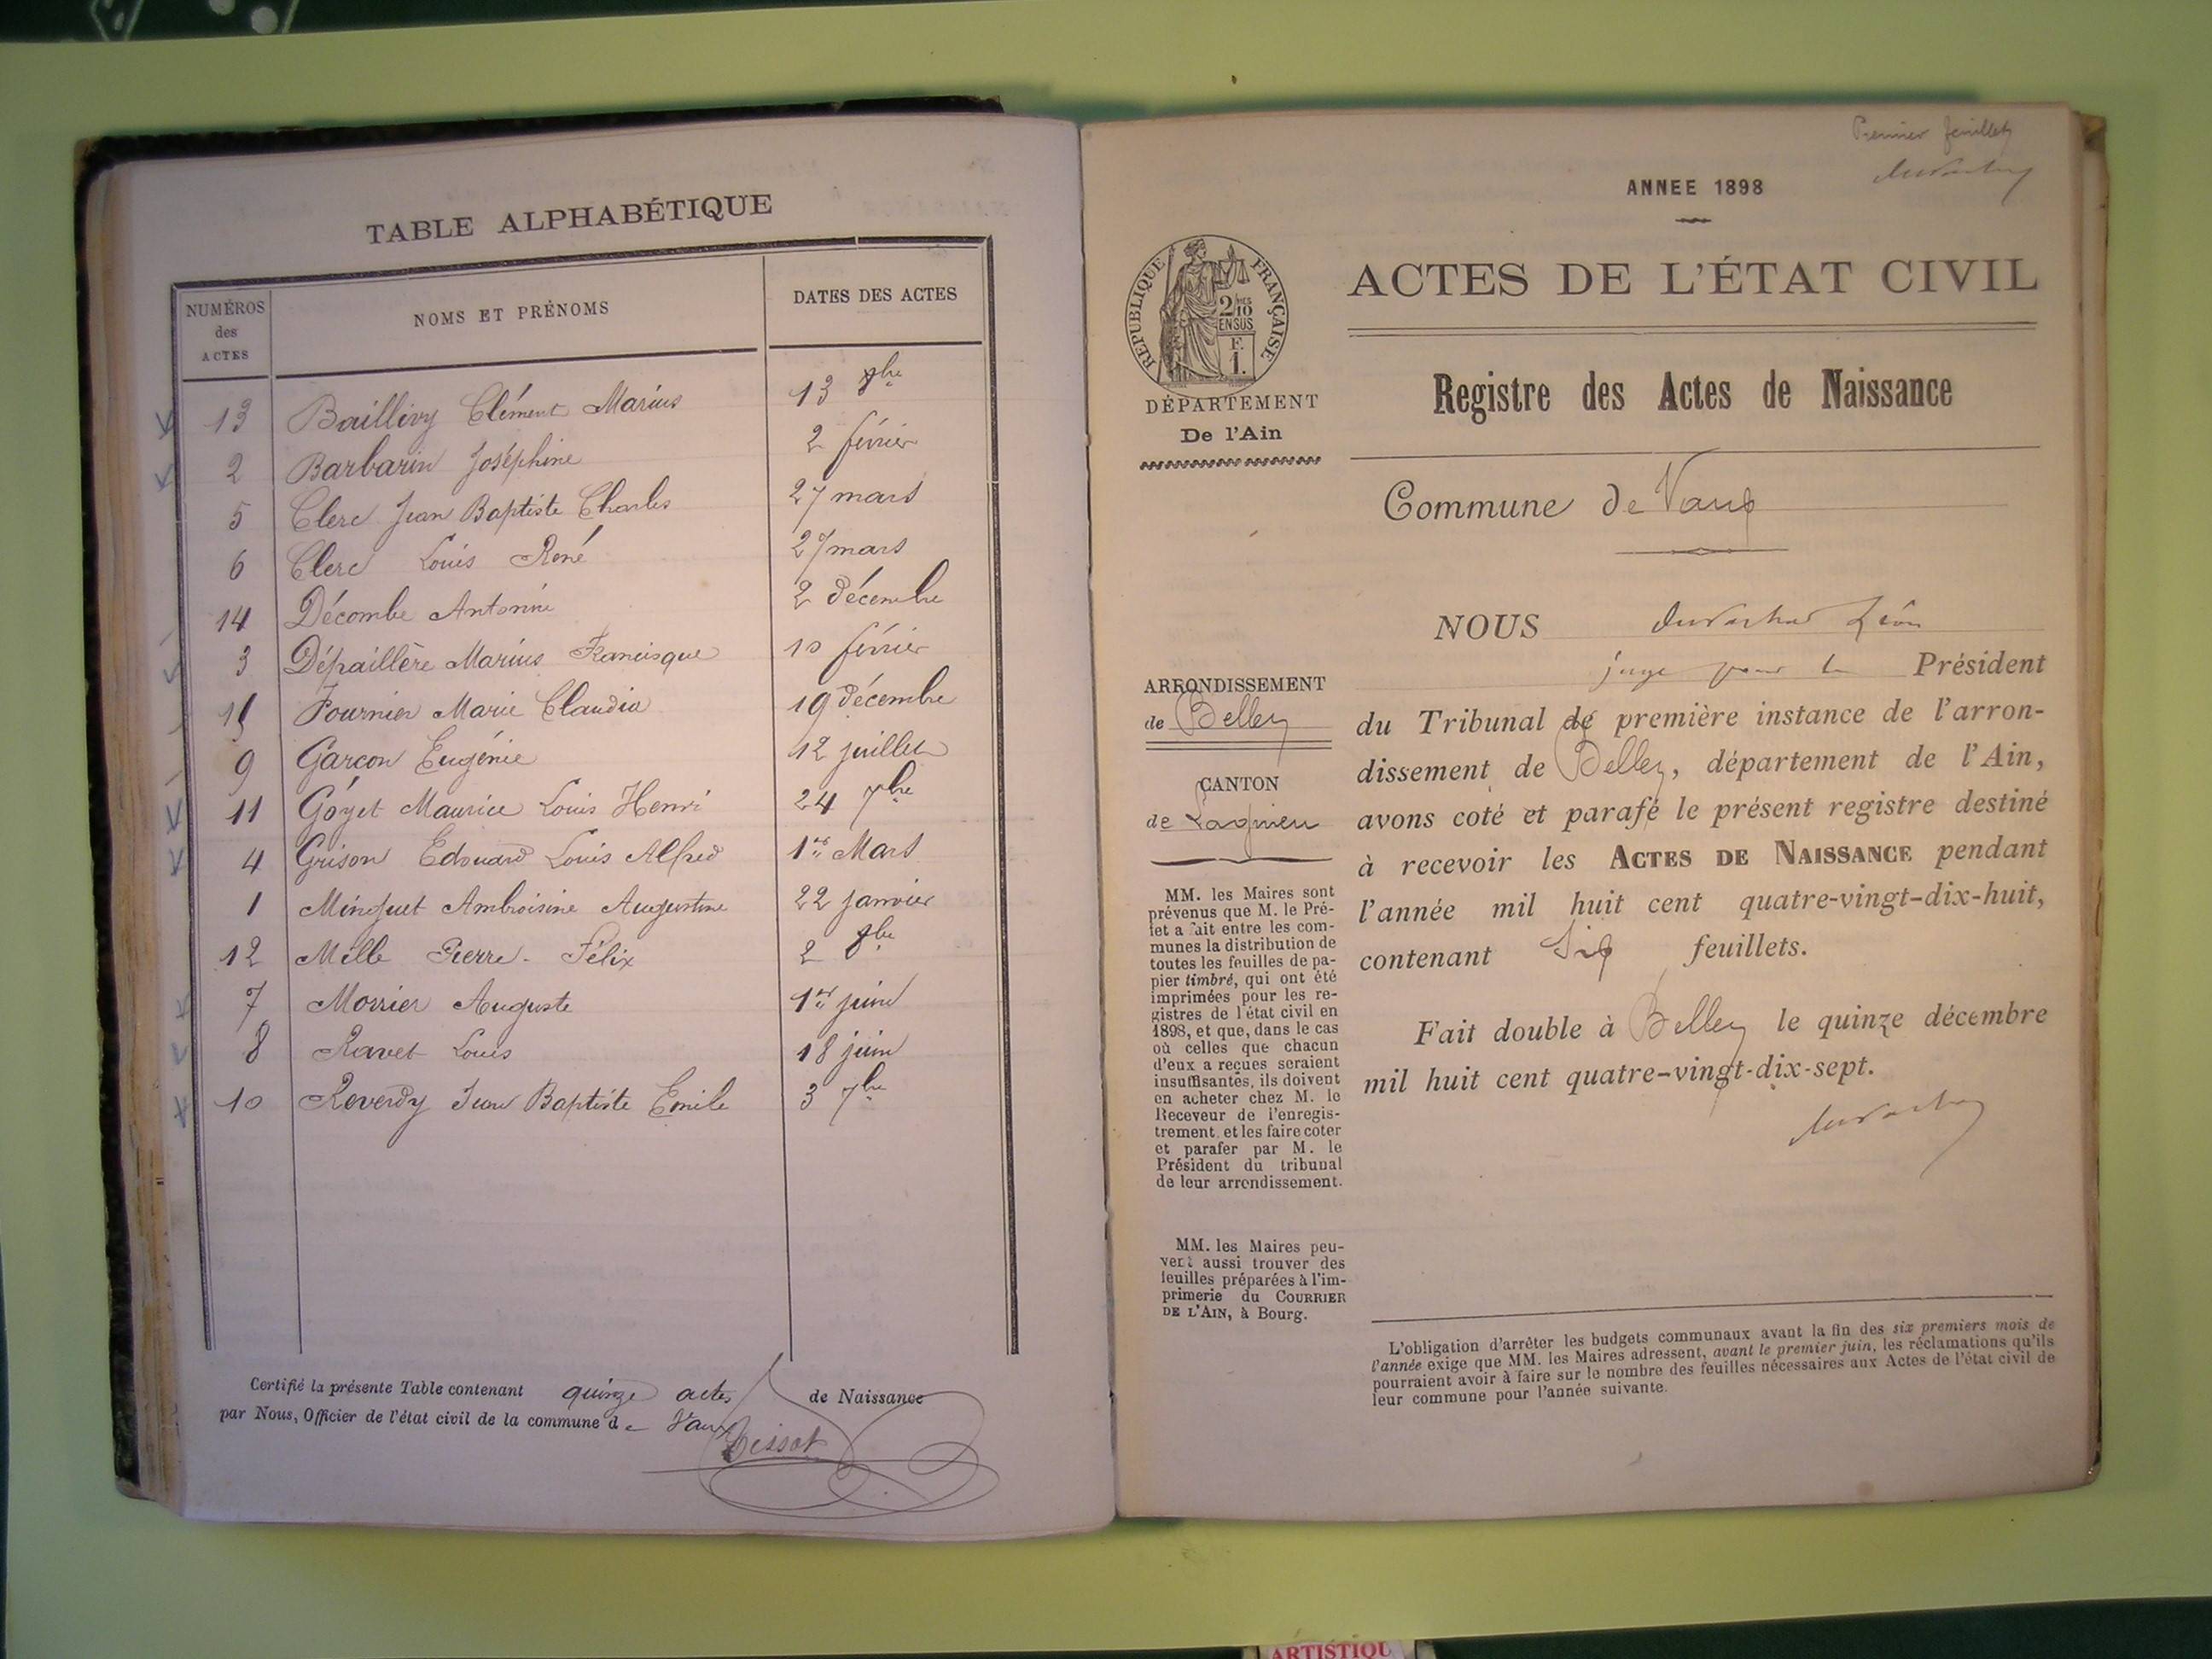 TABLE ALPHABÉTIQUE
NUMÉROS
des
ACTES
NOMS ET PRÉNOMS
DATES DES ACTES
13 Baillivy Clément Marius 13 8bre
2 Barbarin Joséphine 2 février
5 Clerc Jean Baptiste Charles 27 mars
6 Clerc Louis René 27 mars
14 Décombe Antonine 2 décembre
3 Dépaillère Marius Francisque 10 février
15 Fournier Marie Claudia 19 décembre
9 Garcon Eugénie 12 juillet
11 Goyet Maurice Louis Henri 24 7bre
4 Grison Edouard Louis Alfred 1er Mars
1 Minguet Ambroisine Augustine 22 janvier
12 Mille Pierre-Félix 2 8bre
7 Morrier Auguste 1er juin
8 Ravet Louis 18 juin
10 Reverdy Jean Baptiste Emile 3 7bre
Certifié la présente Table contenant quinze actes de Naissance
par Nous, Officier de l'état civil de la commune de Vaux
Premier feuillet
ANNEE 1898
REPUBLIQUE FRANÇAISE
2/10
EN SUS
F.
1.
DÉPARTEMENT
De l'Ain
ACTES DE L'ÉTAT CIVIL
Registre des Actes de Naissance
Commune de Vaux
ARRONDISSEMENT
de Belley
CANTON
de Lagnieu
MM. les Maires sont
prévenus que M. le Pré-
fet a fait entre les com-
munes la distribution de
toutes les feuilles de pa-
pier timbré, qui ont été
imprimées pour les re-
gistres de l'état civil en
1898, et que, dans le cas
où celles que chacun
d'eux a reçues seraient
insuffisantes, ils doivent
en acheter chez M. le
Receveur de l'enregis-
trement, et les faire coter
et parafer par M. le
Président du tribunal
de leur arrondissement.
MM. les Maires peu-
vent aussi trouver des
feuilles préparées à l'im-
primerie du COURRIER
DE L'AIN, à Bourg.
NOUS Léon
juge pour le Président
du Tribunal de première instance de l'arron-
dissement de Belley, département de l'Ain,
avons coté et parafé le présent registre destiné
à recevoir les ACTES DE NAISSANCE pendant
l'année mil huit cent quatre-vingt-dix-huit,
contenant Six feuillets.
Fait double à Belley le quinze décembre
mil huit cent quatre-vingt-dix-sept.
L'obligation d'arrêter les budgets communaux avant la fin des six premiers mois de
l'année exige que MM. les Maires adressent, avant le premier juin, les réclamations qu'ils
pourraient avoir à faire sur le nombre des feuilles nécessaires aux Actes de l'état civil de
leur commune pour l'année suivante.
ARTISTIQU